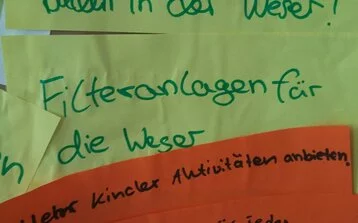 in der Weser!
Filteranlagen für
die Weser
Mehr Kinder Aktivitäten anbieten.